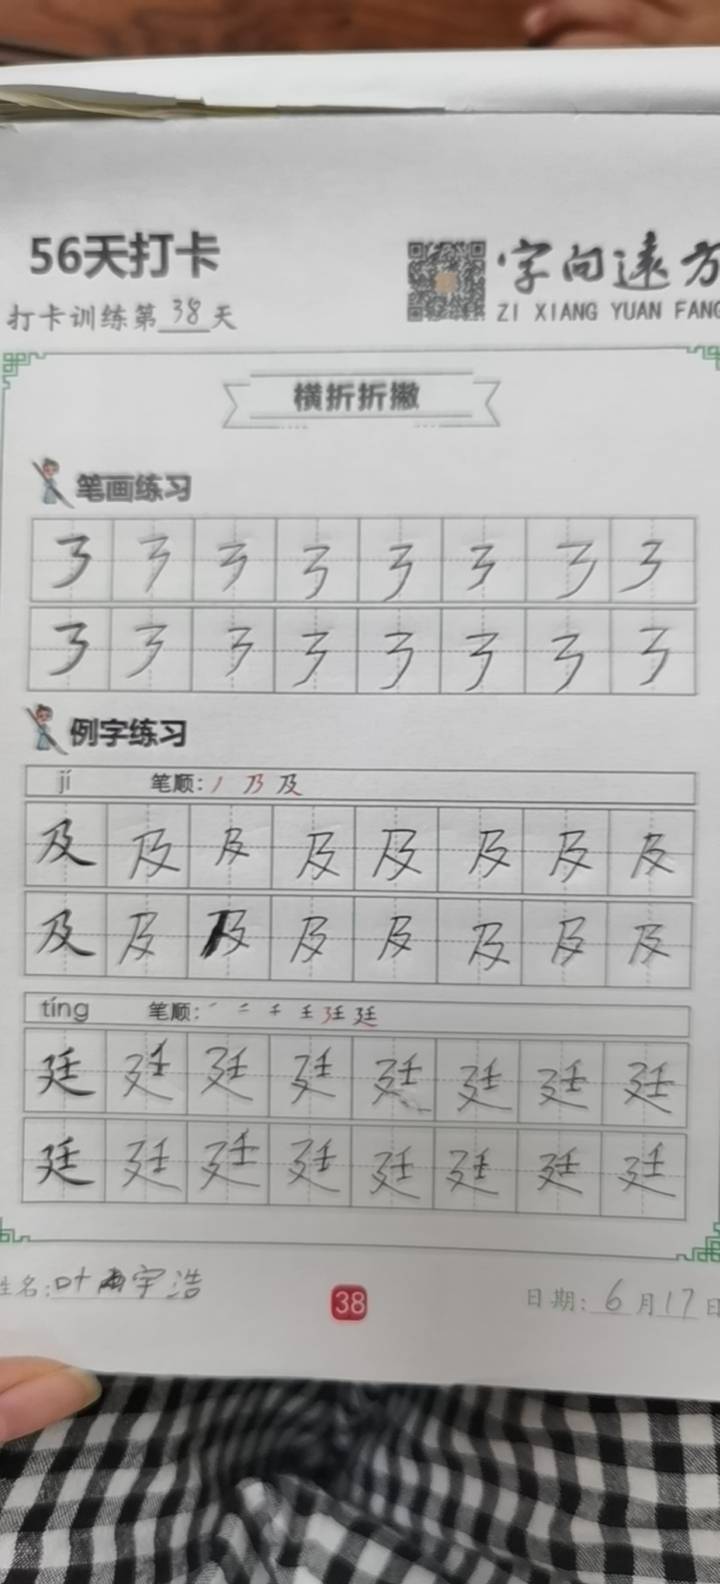 56天打卡
字向远方
打卡训练第38天
ZI XIANG YUAN FANG
横折折撇
笔画练习
㇋ ㇋ ㇋ ㇋ ㇋ ㇋ ㇋ ㇋
㇋ ㇋ ㇋ ㇋ ㇋ ㇋ ㇋ ㇋
例字练习
jí 笔顺: 丿 乃 及
及 及 及 及 及 及 及 及
及 及 及 及 及 及 及 及
tíng 笔顺: ㇒ 二 千 壬 廷 廷
廷 廷 廷 廷 廷 廷 廷 廷
廷 廷 廷 廷 廷 廷 廷 廷
姓名:叶宇浩
38
日期:6月17日